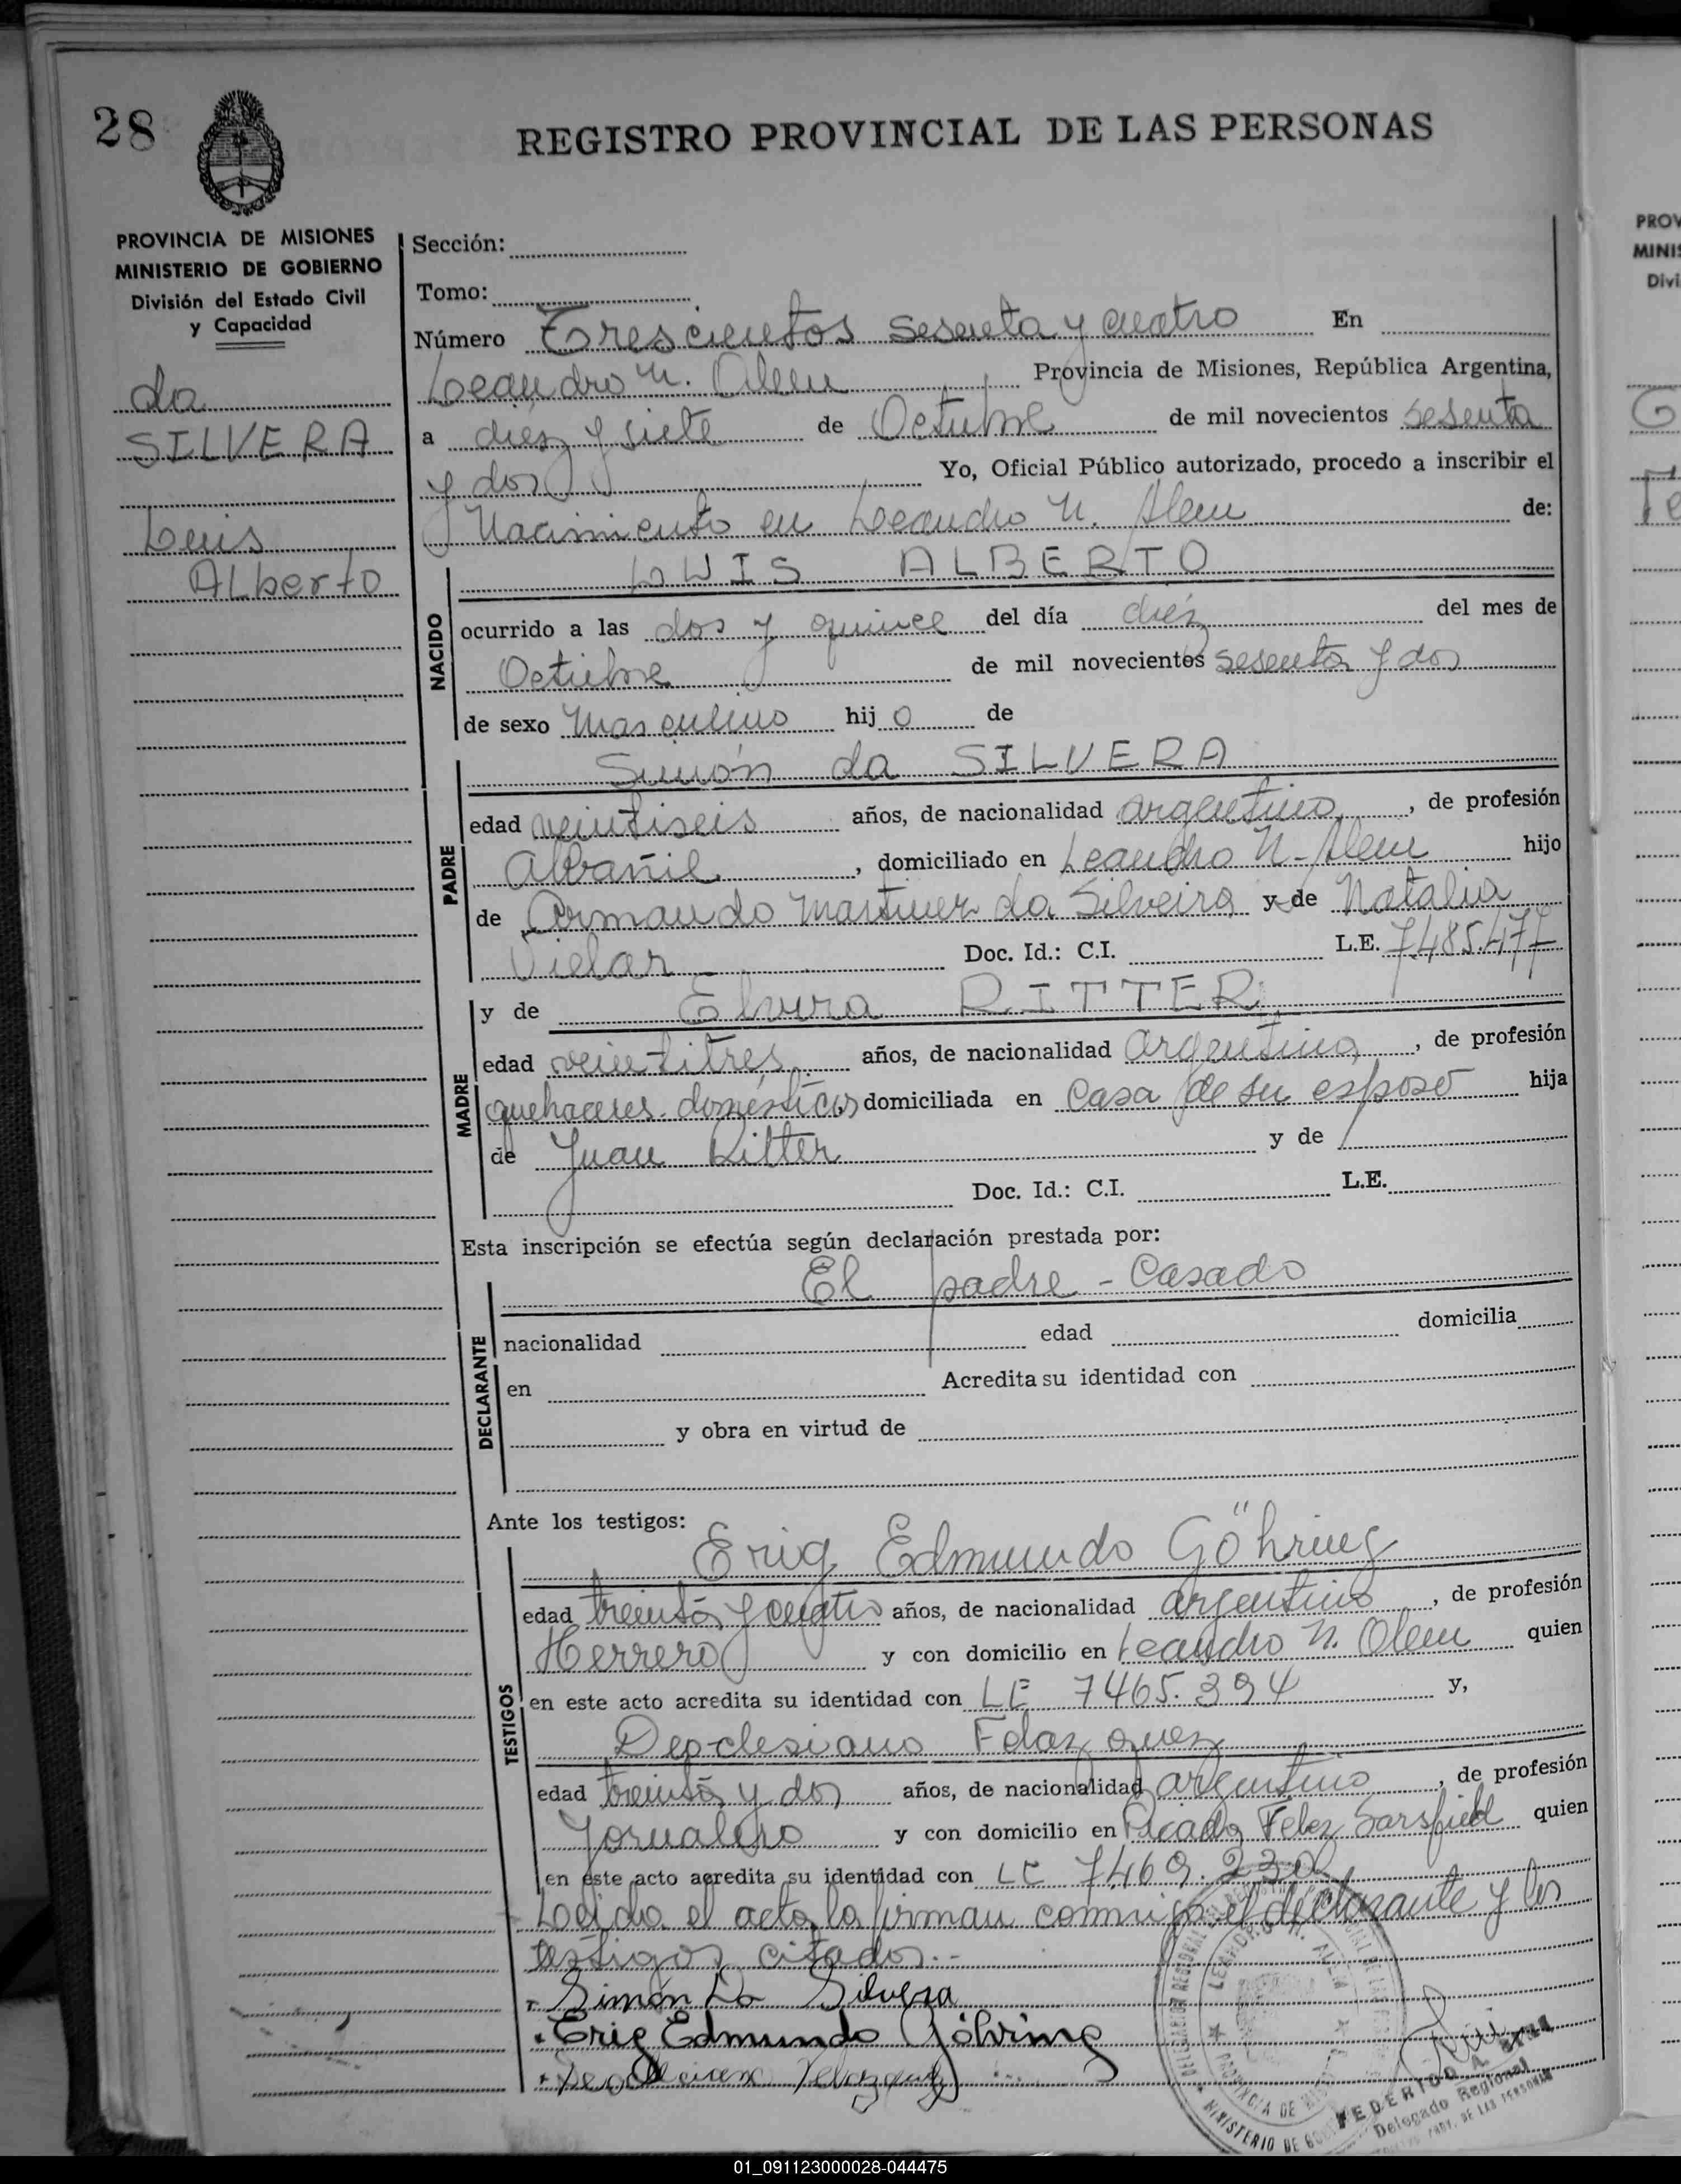 28
REGISTRO PROVINCIAL DE LAS PERSONAS
PROVINCIA DE MISIONES
MINISTERIO DE GOBIERNO
División del Estado Civil
y Capacidad
da
SILVERA
Luis
Alberto
Sección:
Tomo:
Número Trescientos sesenta y cuatro En
Leandro N. Alem Provincia de Misiones, República Argentina,
a diez y siete de Octubre de mil novecientos sesenta
y dos Yo, Oficial Público autorizado, procedo a inscribir el
Nacimiento en Leandro N. Alem de:
NACIDO
LUIS ALBERTO
ocurrido a las dos y quince del día diéz del mes de
Octubre de mil novecientos sesenta y dos
de sexo Masculino hij o de
PADRE
Simón da SILVERA
edad veintiseis años, de nacionalidad argentino, de profesión
Albañil, domiciliado en Leandro N. Alem hijo
de Armando Martinez da Silveira y de Natalia
Vielar Doc. Id.: C.I. L.E. 7.485.477
MADRE
y de Elvira RITTER
edad veintitres años, de nacionalidad argentina, de profesión
quehaceres domésticos domiciliada en Casa de su esposo hija
de Juan Ritter y de
Doc. Id.: C.I. L.E.
Esta inscripción se efectúa según declaración prestada por:
DECLARANTE
El padre - Casado
nacionalidad edad domicilia
en Acredita su identidad con
y obra en virtud de
Ante los testigos:
TESTIGOS
Erig Edmundo Göhring
edad treinta y cuatro años, de nacionalidad argentino, de profesión
Herrero y con domicilio en Leandro N. Alem quien
en este acto acredita su identidad con LE 7465.394 y,
Deoclesiano Felazquez
edad treinta y dos años, de nacionalidad argentino, de profesión
Jornalero y con domicilio en Picada Felez Sarsfield quien
en este acto acredita su identidad con LE 7.469.230
Leida el acta, la firman conmigo, el declarante y los
testigos citados.-
Simón Da Silvera
Erig Edmundo Göhring
Velazquez
LEANDRO N. ALEM
PROVINCIA DE
MINISTERIO DE
FEDERICO A.
Delegado Regional
DE LAS PERSONAS
PROV
MINIS
Divi
01_091123000028-044475